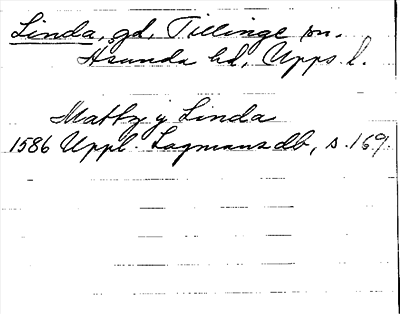 Linda, gd, Tillinge sn.
Asunda hd, Upps. l.
Matts y Linda
1586 Uppl. Lagmansdb, s. 169.